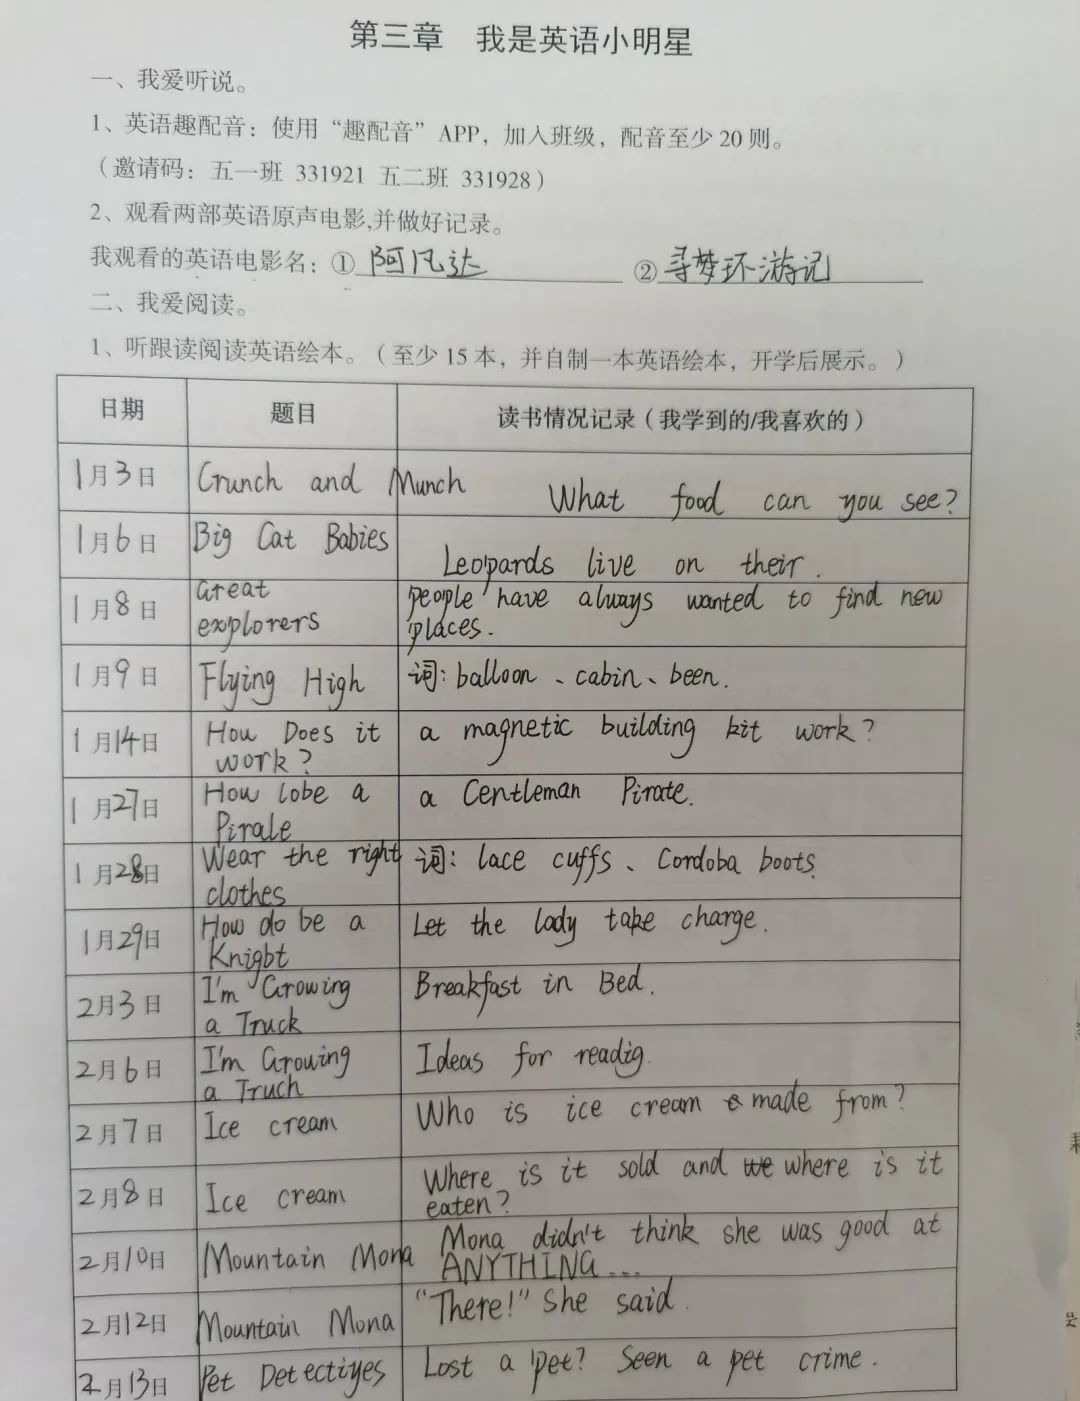 第三章 我是英语小明星
一、我爱听说。
1、英语趣配音：使用“趣配音”APP，加入班级，配音至少20则。
（邀请码：五一班 331921 五二班 331928）
2、观看两部英语原声电影,并做好记录。
我观看的英语电影名：①阿凡达 ②寻梦环游记
二、我爱阅读。
1、听跟读阅读英语绘本。（至少15本，并自制一本英语绘本，开学后展示。）
日期 题目 读书情况记录（我学到的/我喜欢的）
1月3日 Crunch and Munch What food can you see?
1月6日 Big Cat Babies Leopards live on their.
1月8日 Great
explorers
people have always wanted to find new
places.
1月9日 Flying High 词：balloon、cabin、been.
1月14日 How Does it
work?
a magnetic building kit work?
1月27日 How lobe a
Pirale
a Centleman Pirate.
1月28日 Wear the right
clothes
词：lace cuffs、Cordoba boots.
1月29日 How do be a
Knigbt
Let the lady take charge.
2月3日 I'm Growing
a Truck
Breakfast in Bed.
2月6日 I'm Growing
a Truch
Ideas for readig.
2月7日 Ice cream Who is ice cream made from?
2月8日 Ice cream Where is it sold and where is it
eaten?
2月10日 Mountain Mona Mona didn't think she was good at
ANYTHING...
2月12日 Mountain Mona “There!” She said.
2月13日 Pet Detectiyes Lost a pet? Seen a pet crime.